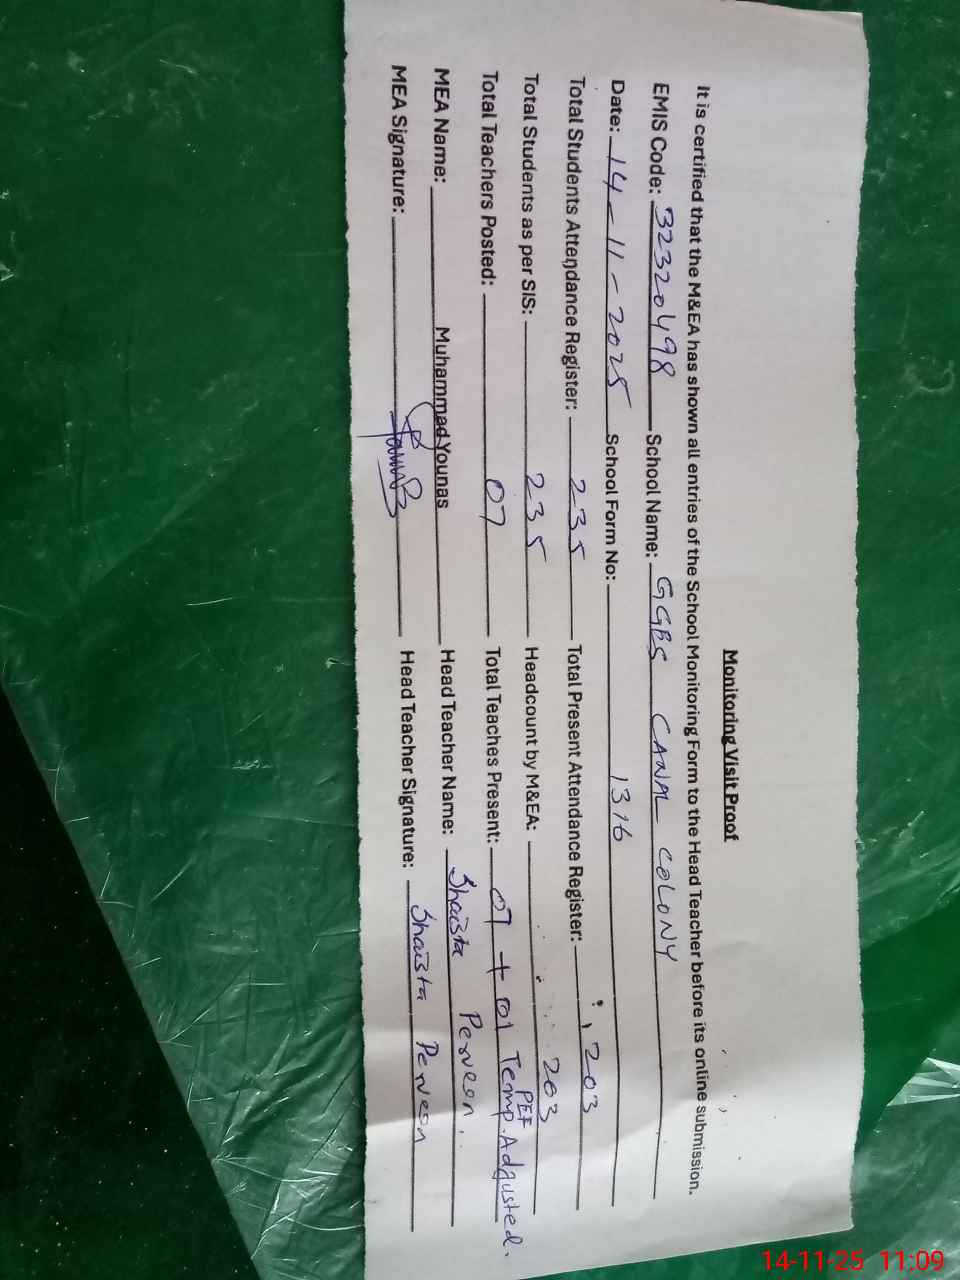 Monitoring Visit Proof
It is certified that the M&EA has shown all entries of the School Monitoring Form to the Head Teacher before its online submission.
EMIS Code: 32320498 School Name: GGES CANAL COLONY
Date: 14-11-2025 School Form No: 1316
Total Students Attendance Register: 235 Total Present Attendance Register: 203
Total Students as per SIS: 235 Headcount by M&EA: 203
Total Teachers Posted: 07 Total Teaches Present: 07 + 01 PEF Temp. Adjusted.
MEA Name: Muhammad Younas Head Teacher Name: Shaista Perveen.
MEA Signature: Younas Head Teacher Signature: Shaista Perveen
14-11-25 11:09